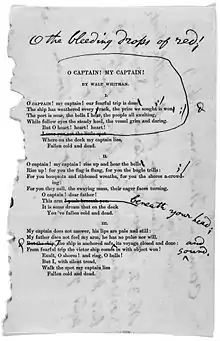 O the bleeding drops of red!
O CAPTAIN! MY CAPTAIN!
BY WALT WHITMAN.
I.
O CAPTAIN! my captain! our fearful trip is done!
The ship has weathered every rack, the prize we sought is won!
The port is near, the bells I hear, the people all exulting,
While follow eyes the steady keel, the vessel grim and daring.
But O heart! heart! heart!
Where on the deck my captain lies,
Fallen cold and dead.
II.
O captain! my captain! rise up and hear the bells!
Rise up! for you the flag is flung, for you the bugle trills:
For you bouquets and ribboned wreaths, for you the shores a-crowd-
ing:
For you they call, the swaying mass, their eager faces turning.
O captain! dear father!
This arm
beneath your head;
It is some dream that on the deck
You've fallen cold and dead.
III.
My captain does not answer, his lips are pale and still:
My father does not feel my arm, he has no pulse nor will.
ship is anchored safe, its voyage closed and done:
and
sound
From fearful trip the victor ship comes in with object won!
Exult, O shores! and ring, O bells!
But I, with silent tread,
Walk the spot my captain lies
Fallen cold and dead.